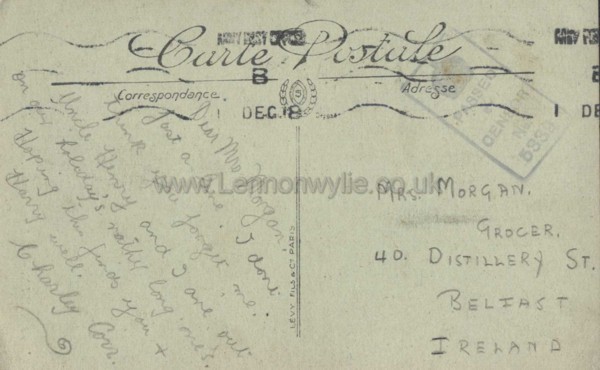 ARMY POST OFFICE
Carte Postale
B
Correspondance
Adresse
1 DEC. 18
1 DE
PASSED
CENSOR
No.
Dear Mrs Morgan,
Just a line. I don't
think you forget me.
Uncle Henry and I are out
on our holiday's rather long one's.
Hoping this finds you +
Harry well.
Charley Corr.
www.Lennonwylie.co.uk
LEVY FILS & Cie PARIS
MRS. MORGAN.
GROCER.
40. DISTILLERY ST.
BELFAST
IRELAND